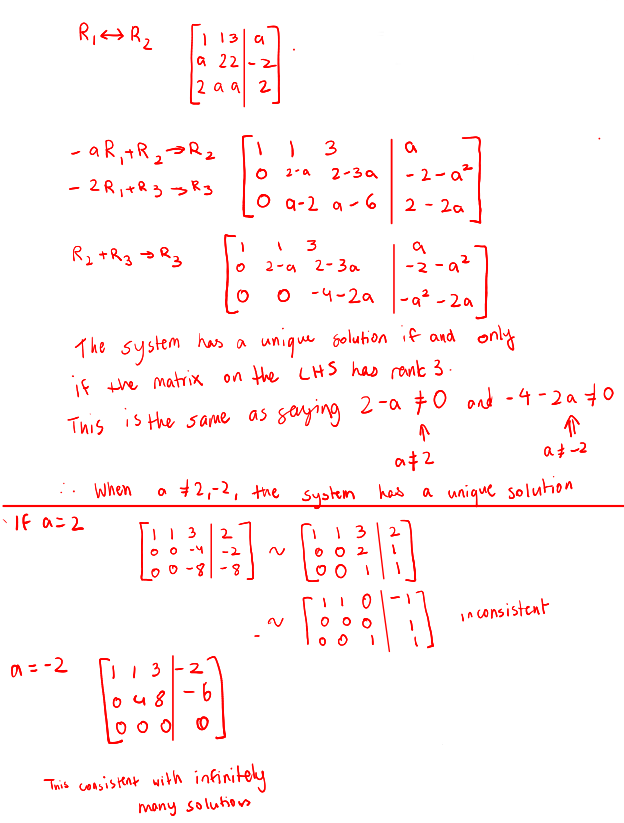 R₁↔R₂ [1 1 3 | a]
[a 2 2 | -2]
[2 a a | 2]
-aR₁+R₂→R₂ [1 1 3 | a]
-2R₁+R₃→R₃ [0 2-a 2-3a | -2-a²]
[0 a-2 a-6 | 2-2a]
R₂+R₃→R₃ [1 1 3 | a]
[0 2-a 2-3a | -2-a²]
[0 0 -4-2a | -a²-2a]
The system has a unique solution if and only
if the matrix on the LHS has rank 3.
This is the same as saying 2-a ≠ 0 and -4-2a ≠ 0
↑ ⇑
a≠2 a≠-2
∴ When a ≠2,-2, the system has a unique solution
If a=2 [1 1 3 | 2] ~ [1 1 3 | 2]
[0 0 -4 | -2] [0 0 2 | 1]
[0 0 -8 | -8] [0 0 1 | 1]
~ [1 1 0 | -1] inconsistent
[0 0 0 | 1]
[0 0 1 | 1]
a=-2 [1 1 3 | -2]
[0 4 8 | -6]
[0 0 0 | 0]
This consistent with infinitely
many solutions